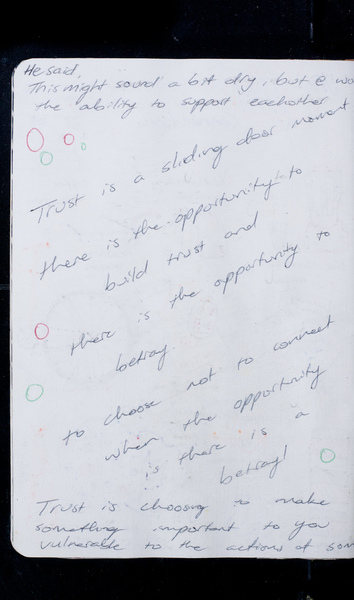 He said,
This might sound a bit dry, but @ wo
the ability to support eachother
Trust is a sliding door moment
there is the opportunity to
build trust and
there is the opportunity to
betray.
to choose not to connect
when the opportunity
is there is a
betrayl
Trust is choosing to make
something important to you
vulnerable to the actions of som